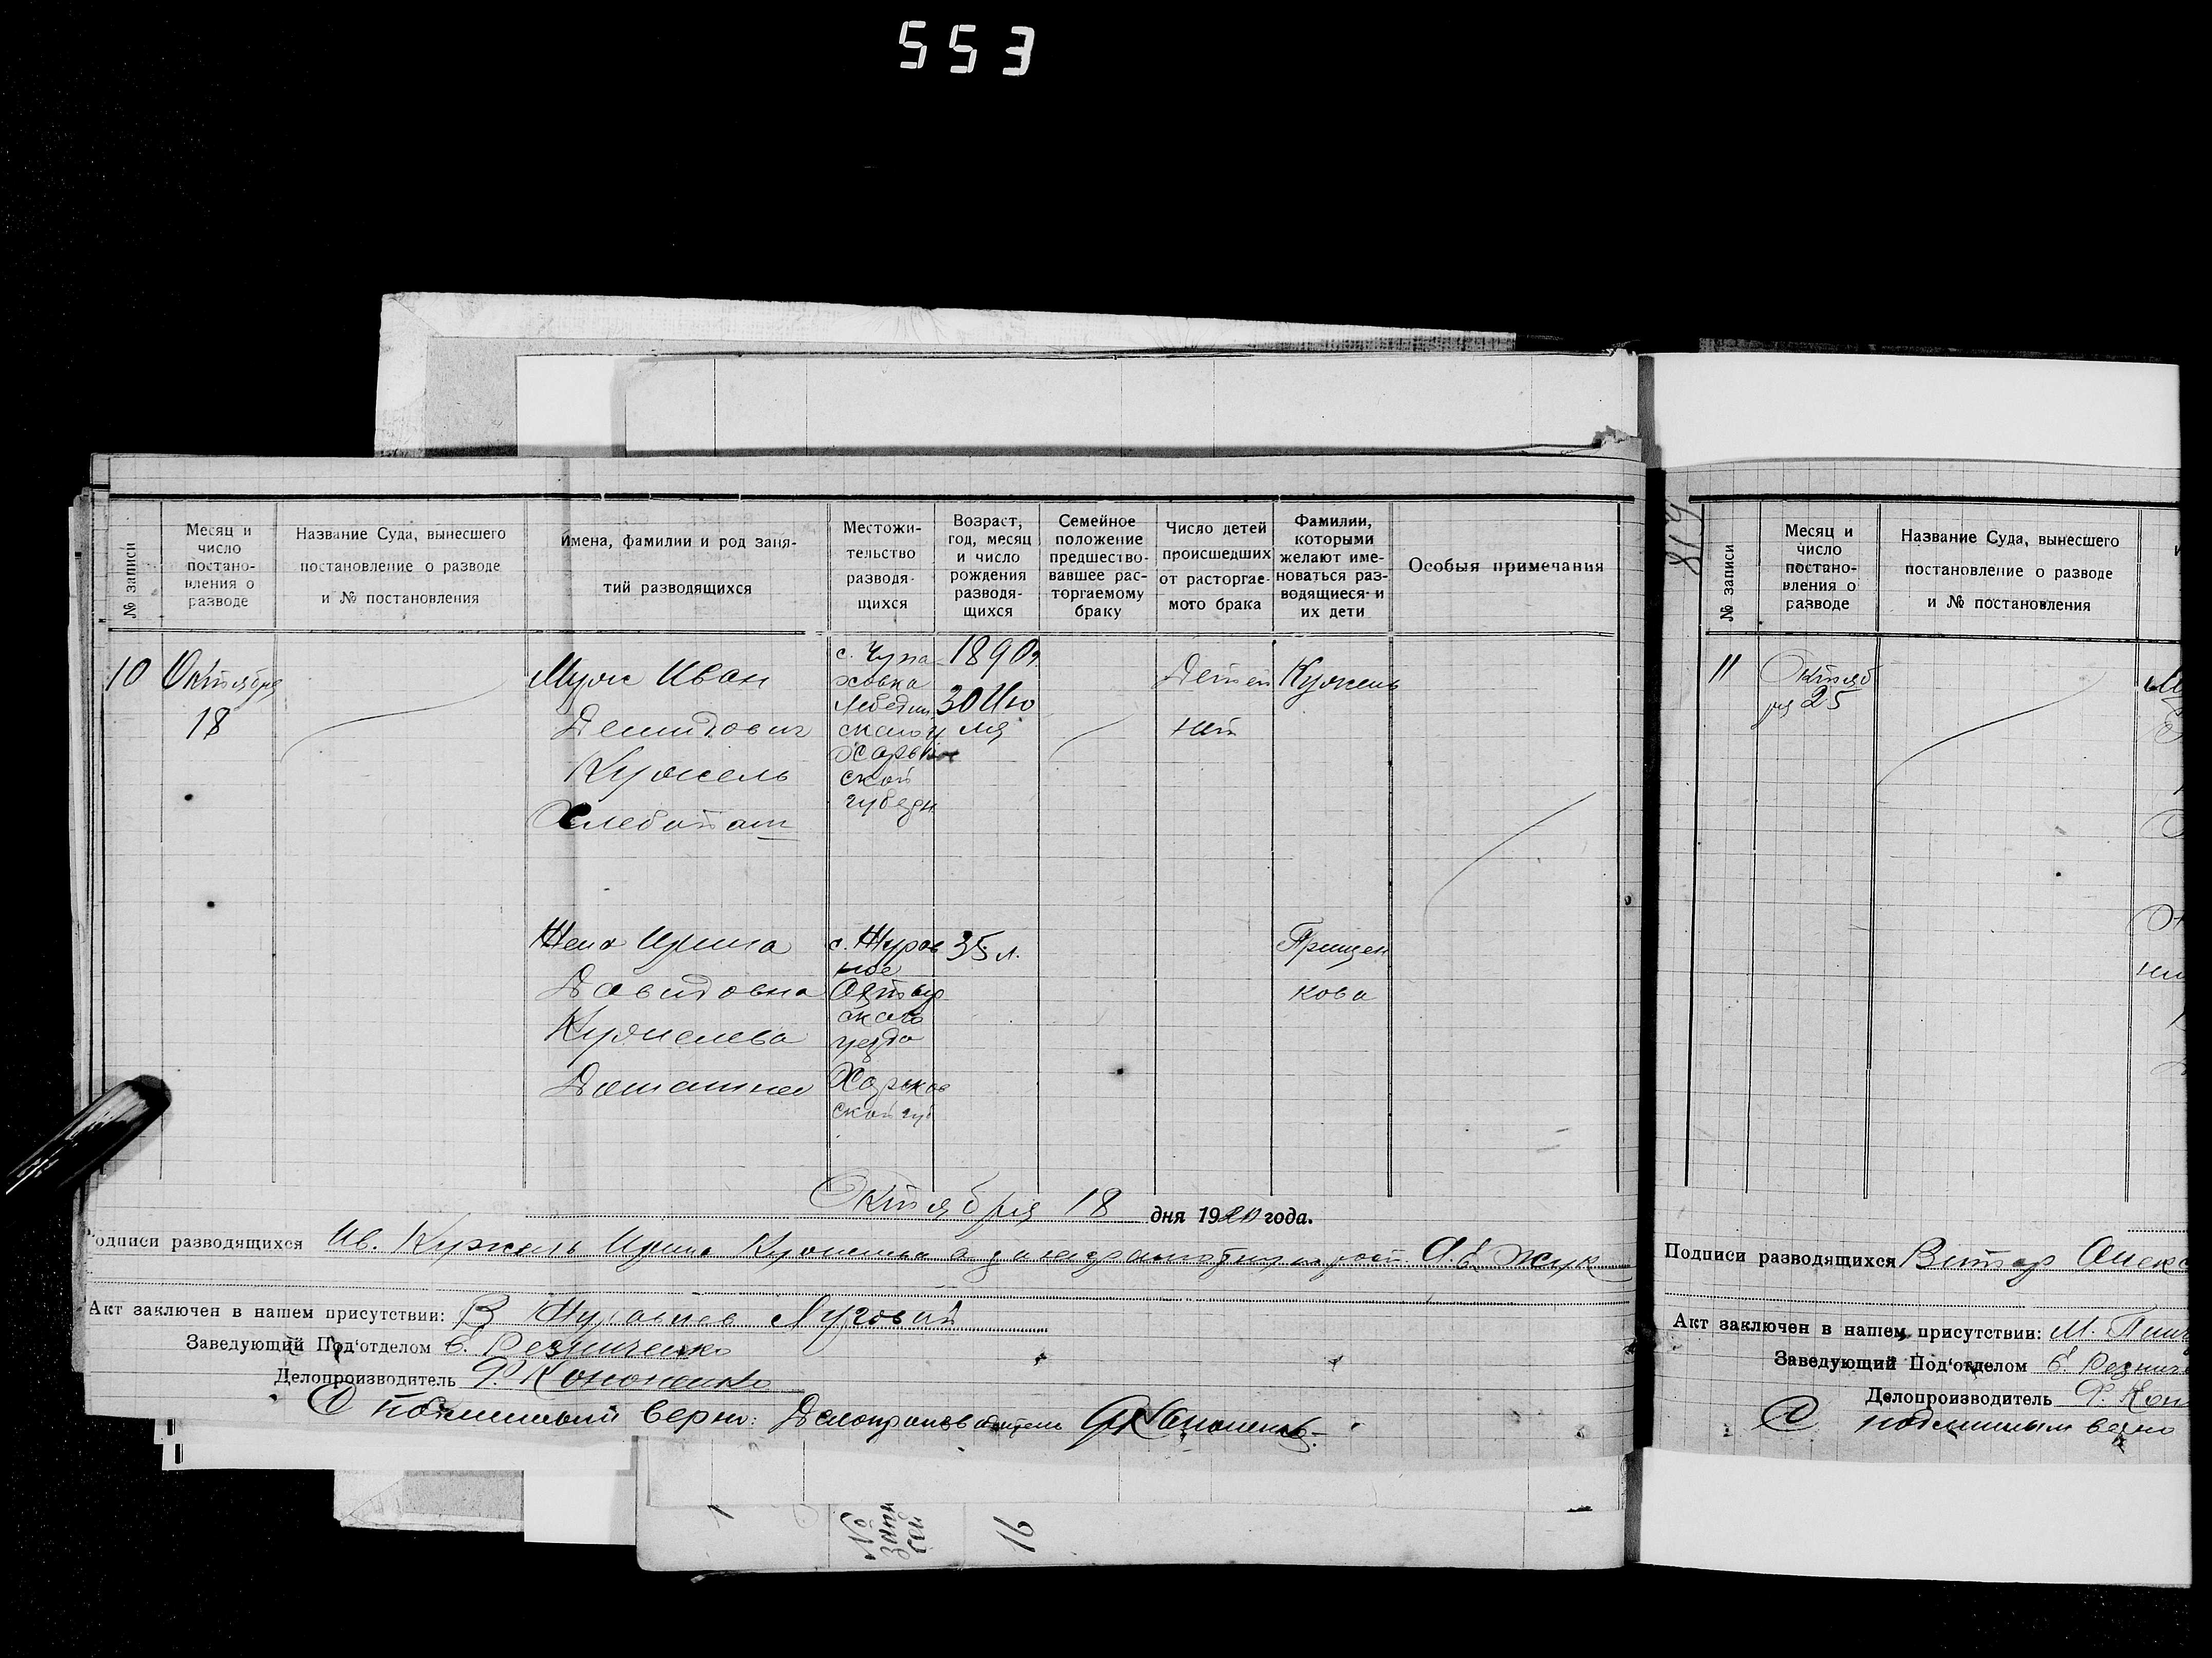 553
№ записи
Месяц и число постано- вления о разводе
Название Суда, вынесшего постановление о разводе и № постановления
Имена, фамилии и род заня- тий разводящихся
Местожи- тельство разводя- щихся
Возраст, год, месяц и число рождения разводя- щихся
Семейное положение предшество- вавшее рас- торгаемому браку
Число детей происшедших от расторгае- мого брака
Фамилии, которыми желают име- новаться раз- водящиеся и их дети
Особыя примечания
10
Октября
18
Муж Иван
Демидович
Кужель
Хлебопаш
с. Чупа
ховка
Лебедин
ского у
Харьков
ской
губерн
1890 г.
30 Ию
ля
Детей
нет
Кужель
Жена Ирина
Давидовна
Кужелева
Домашнее
с. Журав
ное
Ахтыр
ского
уезда
Харьков
ской губ
35 л.
Грищен
кова
Октября 18 дня 1920 года.
Подписи разводящихся Ив. Кужель Ирина Кужелева а за неграмотную рост. А. Е. Жук
Акт заключен в нашем присутствии: В Журавлев Луговой
Заведующий Под'отделом Е. Резниченко
Делопроизводитель Ф. Кононенко
С подлинным верно: Делопроизводитель ФКононенко
№
запи
сей
16
819
№ записи
Месяц и число постано- вления о разводе
Название Суда, вынесшего постановление о разводе и № постановления
11
Октяб
ря 25
Подписи разводящихся Виктор Алекс
Акт заключен в нашем присутствии: М.
Заведующий Под'отделом Е. Резниче
Делопроизводитель Ф. Кон
С подлинным верно